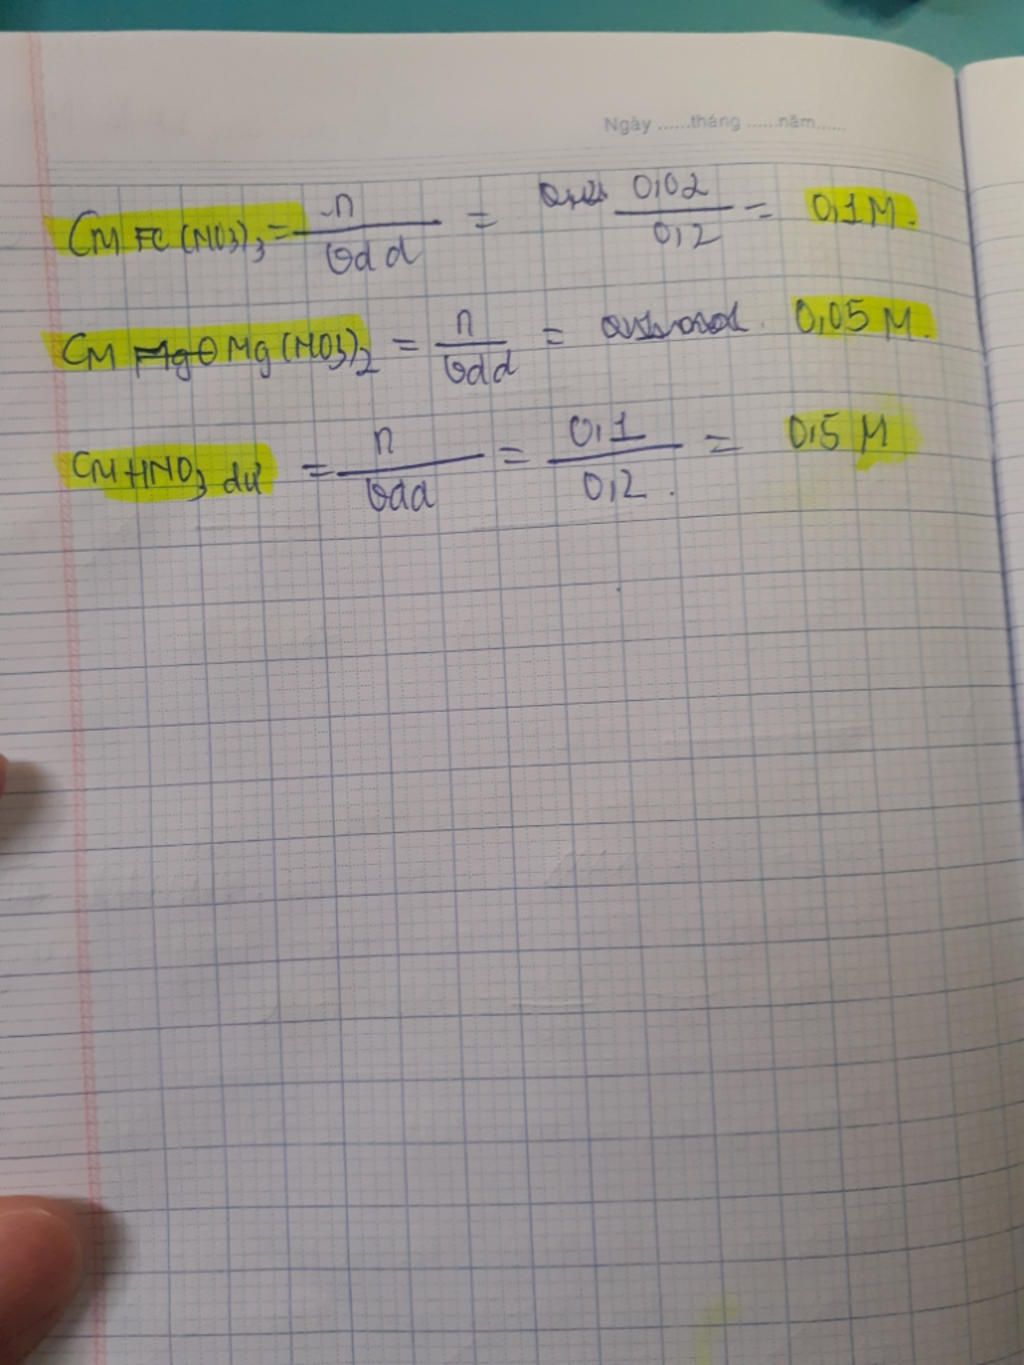 Ngày ......tháng ......năm......
CM Fe(NO3)3 = n / Vdd = 0,02 / 0,2 = 0,1M.
CM MgO Mg(NO3)2 = n / Vdd = 0,05 M.
CM HNO3 dư = n / Vdd = 0,1 / 0,2. = 0,5 M